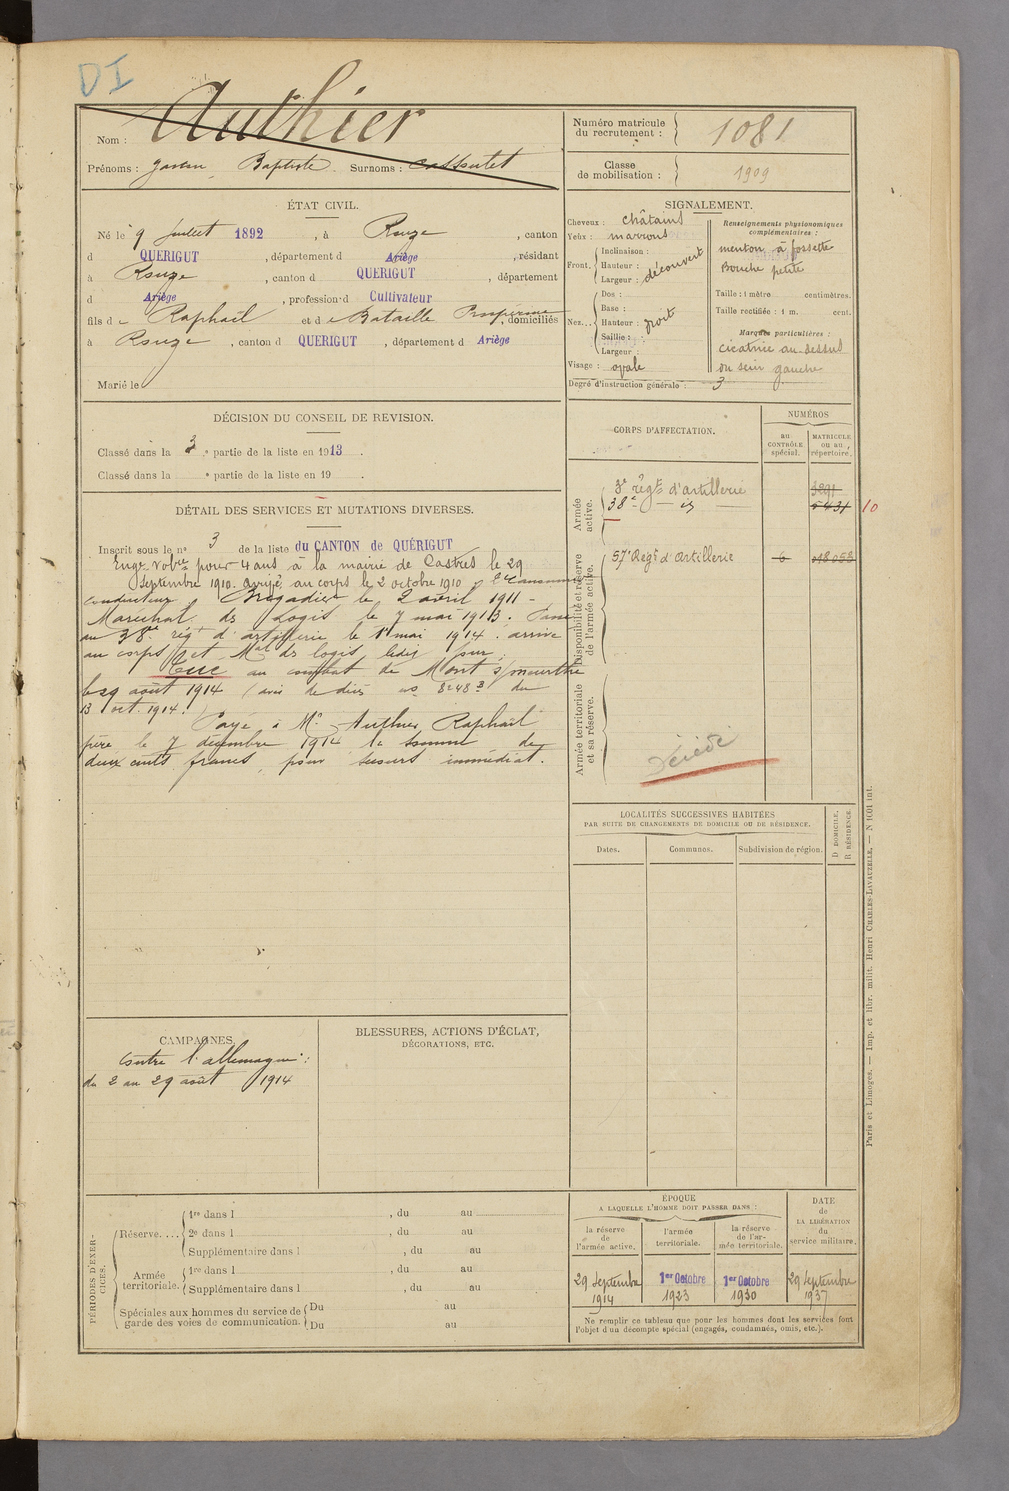 DI
Nom : Authier
Prénoms : Gaston Baptiste Surnoms :
Numéro matricule du recrutement : 1081
Classe de mobilisation : 1909
ÉTAT CIVIL.
Né le 9 juillet 1892, à Rouze, canton
d QUERIGUT, département d Ariège, résidant
à Rouze, canton d QUERIGUT, département
d Ariège, profession d Cultivateur
fils de Raphaël et de Bataille Prospérine, domiciliés
à Rouze, canton d QUERIGUT, département d Ariège
Marié le
SIGNALEMENT.
Cheveux : châtains
Yeux : marrons
Front. Inclinaison :
Hauteur : découvert
Largeur :
Nez... Dos :
Base :
Hauteur :
Saillie :
Largeur :
Visage : ovale
Degré d'instruction générale : 3
Renseignements physionomiques complémentaires :
menton à fossette
Bouche petite
Taille : 1 mètre centimètres.
Taille rectifiée : 1 m. cent.
Marques particulières :
cicatrice au-dessus
du sein gauche
DÉCISION DU CONSEIL DE REVISION.
Classé dans la 3e partie de la liste en 1913.
Classé dans la e partie de la liste en 19 .
DÉTAIL DES SERVICES ET MUTATIONS DIVERSES.
Inscrit sous le no 3 de la liste du CANTON de QUÉRIGUT
Engé volre pour 4 ans à la mairie de Castres le 29
Septembre 1910. Arrivé au corps le 2 octobre 1910
conducteur. Brigadier le 2 avril 1911 -
Maréchal des Logis le 7 mai 1913. Passé
au 38e régt d'artillerie le 1er mai 1914. arrivé
au corps et Mal des logis ledit jour.
Tué au combat de Mont s/meurthe
le 29 août 1914 (avis de décès no du
13 oct. 1914.)
Payé à Mr Authier Raphaël
père le 7 décembre 1914 la somme de
deux cents francs, pour secours immédiat.
CORPS D'AFFECTATION.
NUMÉROS
au CONTRÔLE spécial.
MATRICULE ou au répertoire.
Armée active.
3e régt d'artillerie 3291
38e - id - 5431 10
Disponibilité et réserve de l'armée active.
57e Regt d'Artillerie 6 018053
Armée territoriale et sa réserve.
Décédé
LOCALITÉS SUCCESSIVES HABITÉES
PAR SUITE DE CHANGEMENTS DE DOMICILE OU DE RÉSIDENCE.
Dates.
Communes.
Subdivision de région.
D DOMICILE.
R RÉSIDENCE.
CAMPAGNES.
Contre l'allemagne :
du 2 au 29 août 1914
BLESSURES, ACTIONS D'ÉCLAT,
DÉCORATIONS, ETC.
PÉRIODES D'EXERCICES.
Réserve.... 1re dans l , du au
2e dans l , du au
Supplémentaire dans l , du au
Armée territoriale. 1re dans l , du au
Supplémentaire dans l , du au
Spéciales aux hommes du service de garde des voies de communication. Du au
Du au
ÉPOQUE
A LAQUELLE L'HOMME DOIT PASSER DANS :
la réserve de l'armée active.
l'armée territoriale.
la réserve de l'armée territoriale.
DATE de LA LIBÉRATION du service militaire.
29 Septembre 1914
1er Octobre 1923
1er Octobre 1930
29 Septembre 1937
Ne remplir ce tableau que pour les hommes dont les services font
l'objet d'un décompte spécial (engagés, condamnés, omis, etc.).
Paris et Limoges. — Imp. et libr. milit. Henri CHARLES-LAVAUZELLE. — N 1001 int.